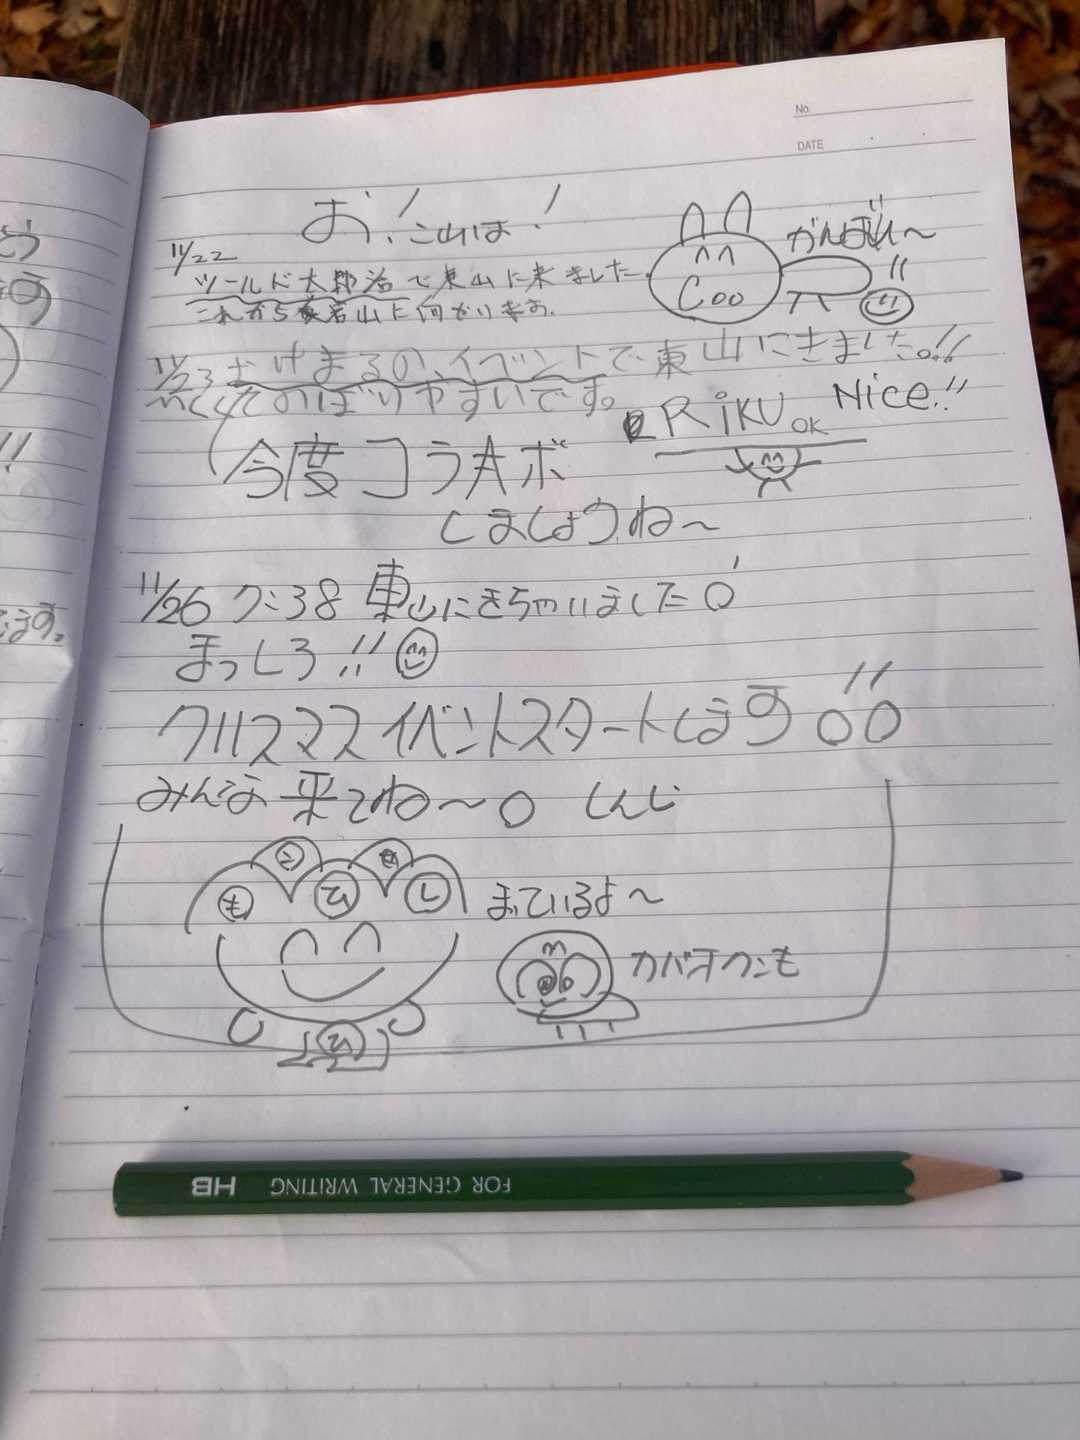 No.
DATE
お!こ山は!
11/22
ツールド太郎治で東山に来ました
これから 若山に向かります。
Coo
がんばれ〜!!
11/23 おけまるの、イベントで東山にきました。!!
のぼりやすいです。
RiKU OK Nice!!
今度コラボ
しましょうね〜
11/26 7:38 東山にきちゃいました!
まっしろ!!
クリスマスイベントスタートします!!
みんな来てね〜 しんじ
も ひ し
まっているよ〜
カバオクンも
FOR GENERAL WRITING HB
ます。